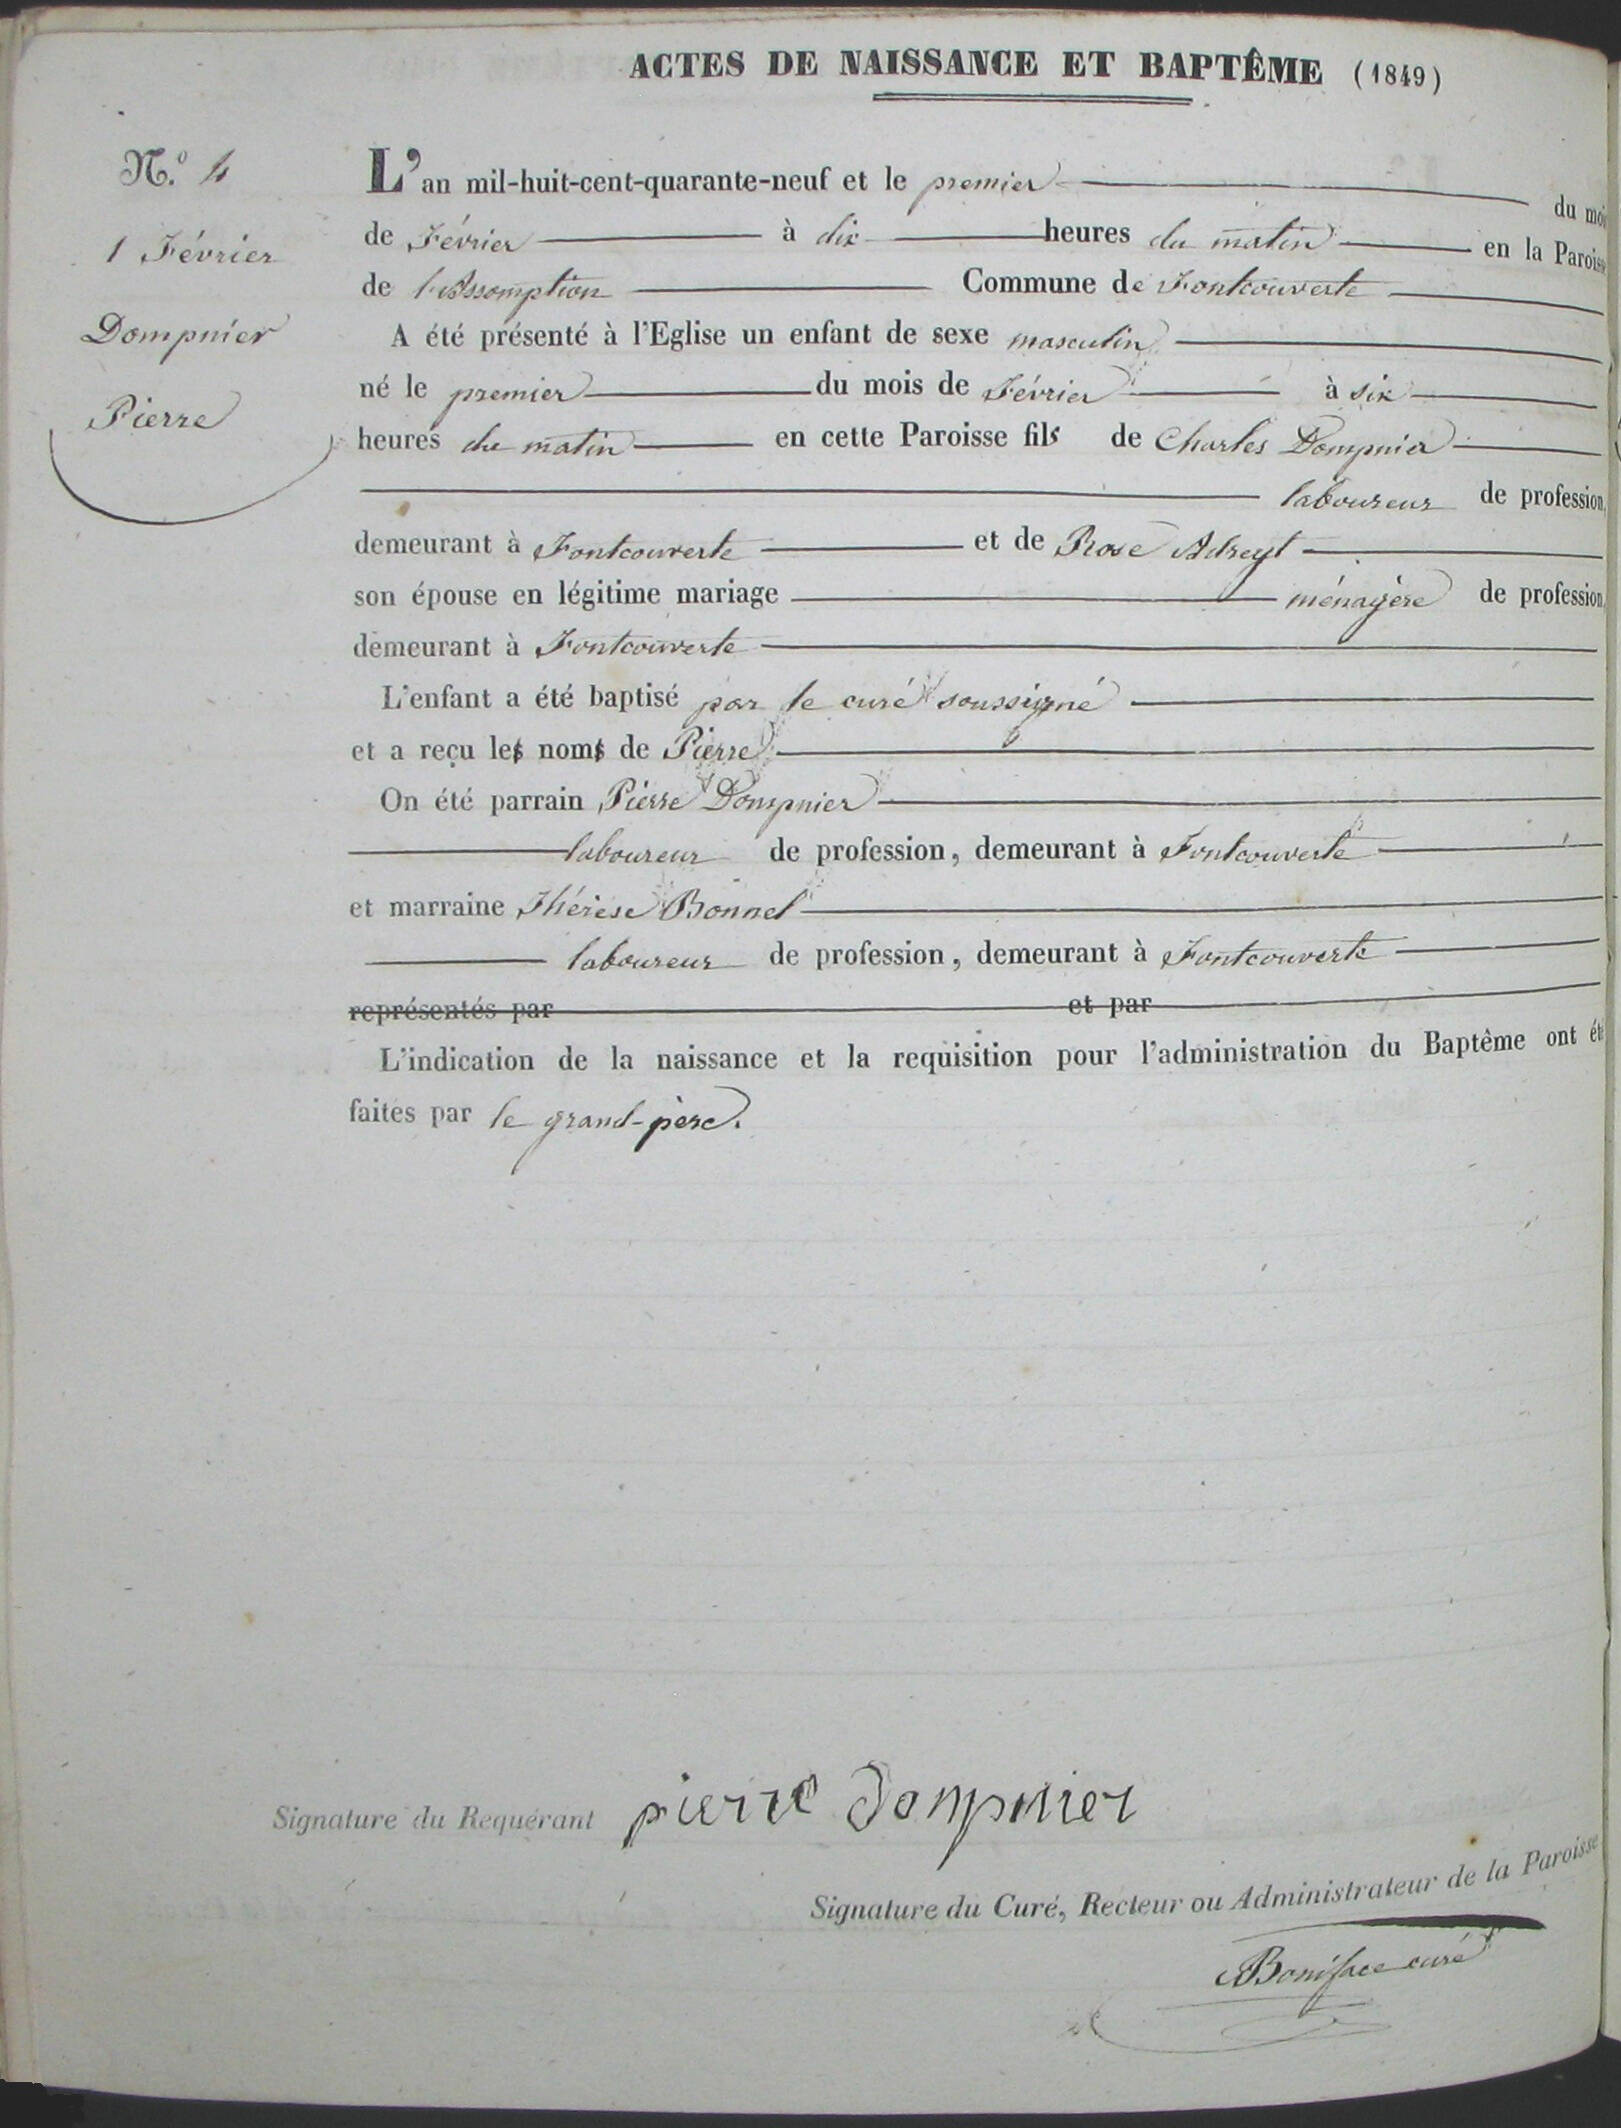 ACTES DE NAISSANCE ET BAPTÊME (1849)
N.º 4
1 Février
Dompnier
Pierre
L'an mil-huit-cent-quarante-neuf et le premier du moi
de Février à dix heures du matin en la Paroisse
de l'Assomption Commune de Fontcouverte
A été présenté à l'Eglise un enfant de sexe masculin
né le premier du mois de Février à six
heures du matin en cette Paroisse fils de Charles Dompnier
laboureur de profession,
demeurant à Fontcouverte et de Rose Adreyt
son épouse en légitime mariage ménagère de profession,
demeurant à Fontcouverte
L'enfant a été baptisé par le curé soussigné
et a reçu les noms de Pierre
On été parrain Pierre Dompnier
laboureur de profession, demeurant à Fontcouverte
et marraine Thérèse Bonnel
laboureur de profession, demeurant à Fontcouverte
représentés par et par
L'indication de la naissance et la requisition pour l'administration du Baptême ont ét
faites par le grand-père.
Signature du Requérant pierre Dompnier
Signature du Curé, Recteur ou Administrateur de la Paroisse
Boniface curé